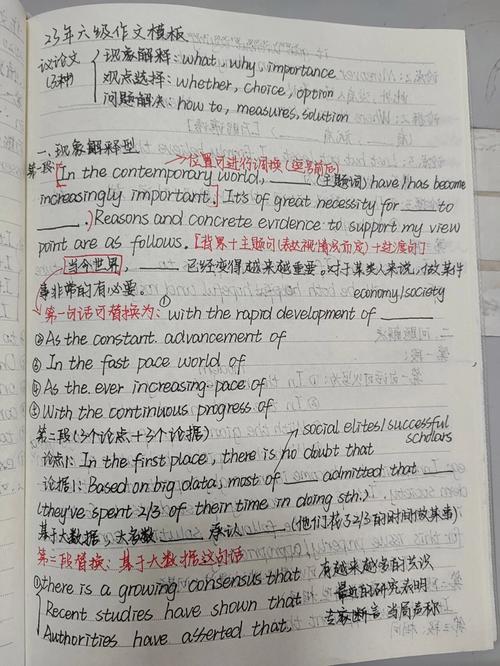 23年六级作文模板
议论文 现象解释：what, why, importance
(3种) 观点选择：whether, choice, option
问题解决：how to, measures, solution
一、现象解释型
→位置可进行调换(逗号前后)
第一段：[In the contemporary world, ____ (主题词) have/has become
increasingly important.] It's of great necessity for ____ to
____.) Reasons and concrete evidence to support my view
point are as follows. [背景+主题句(表达视情况而定)+过度句]
当今世界, ____ 已经变得越来越重要。对于某类人来说, 做某件
事非常的有必要。 economy/society
第一句话可替换为：① with the rapid development of ____
② As the constant advancement of
③ In the fast pace world of
④ As the ever increasing pace of
⑤ With the continuous progress of
第二段(3个论点+3个论据) social elites/successful
scholars
论点1：In the first place, there is no doubt that
论据1：Based on big data, most of ____ admitted that ____
(they've spent 2/3 of their time in doing sth.)
基于大数据, 大多数 ____ 承认 ____ (他们花了2/3的时间做某事)
第二段替换：基于大数据这句话
①there is a growing consensus that 有越来越多的共识
Recent studies have shown that 最近的研究表明
Authorities have asserted that, 专家断言 当局声称